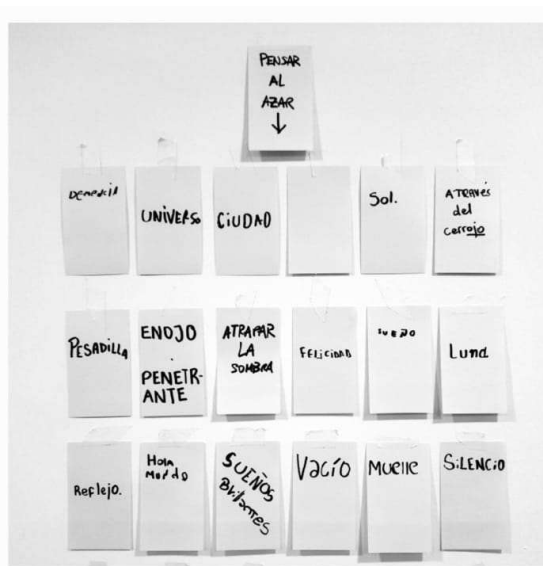 PENSAR
AL
AZAR
↓
UNIVERSO
CIUDAD
Sol.
ATRAVÉS
del
cerrojo
PESADILLA
ENOJO
.
PENETR-
ANTE
ATRAPAR
LA
SOMBRA
FELICIDAD
Luna
Reflejo.
Hola
SUEÑOS
BRILLANTES
VACÍO
MUELLE
SILENCIO